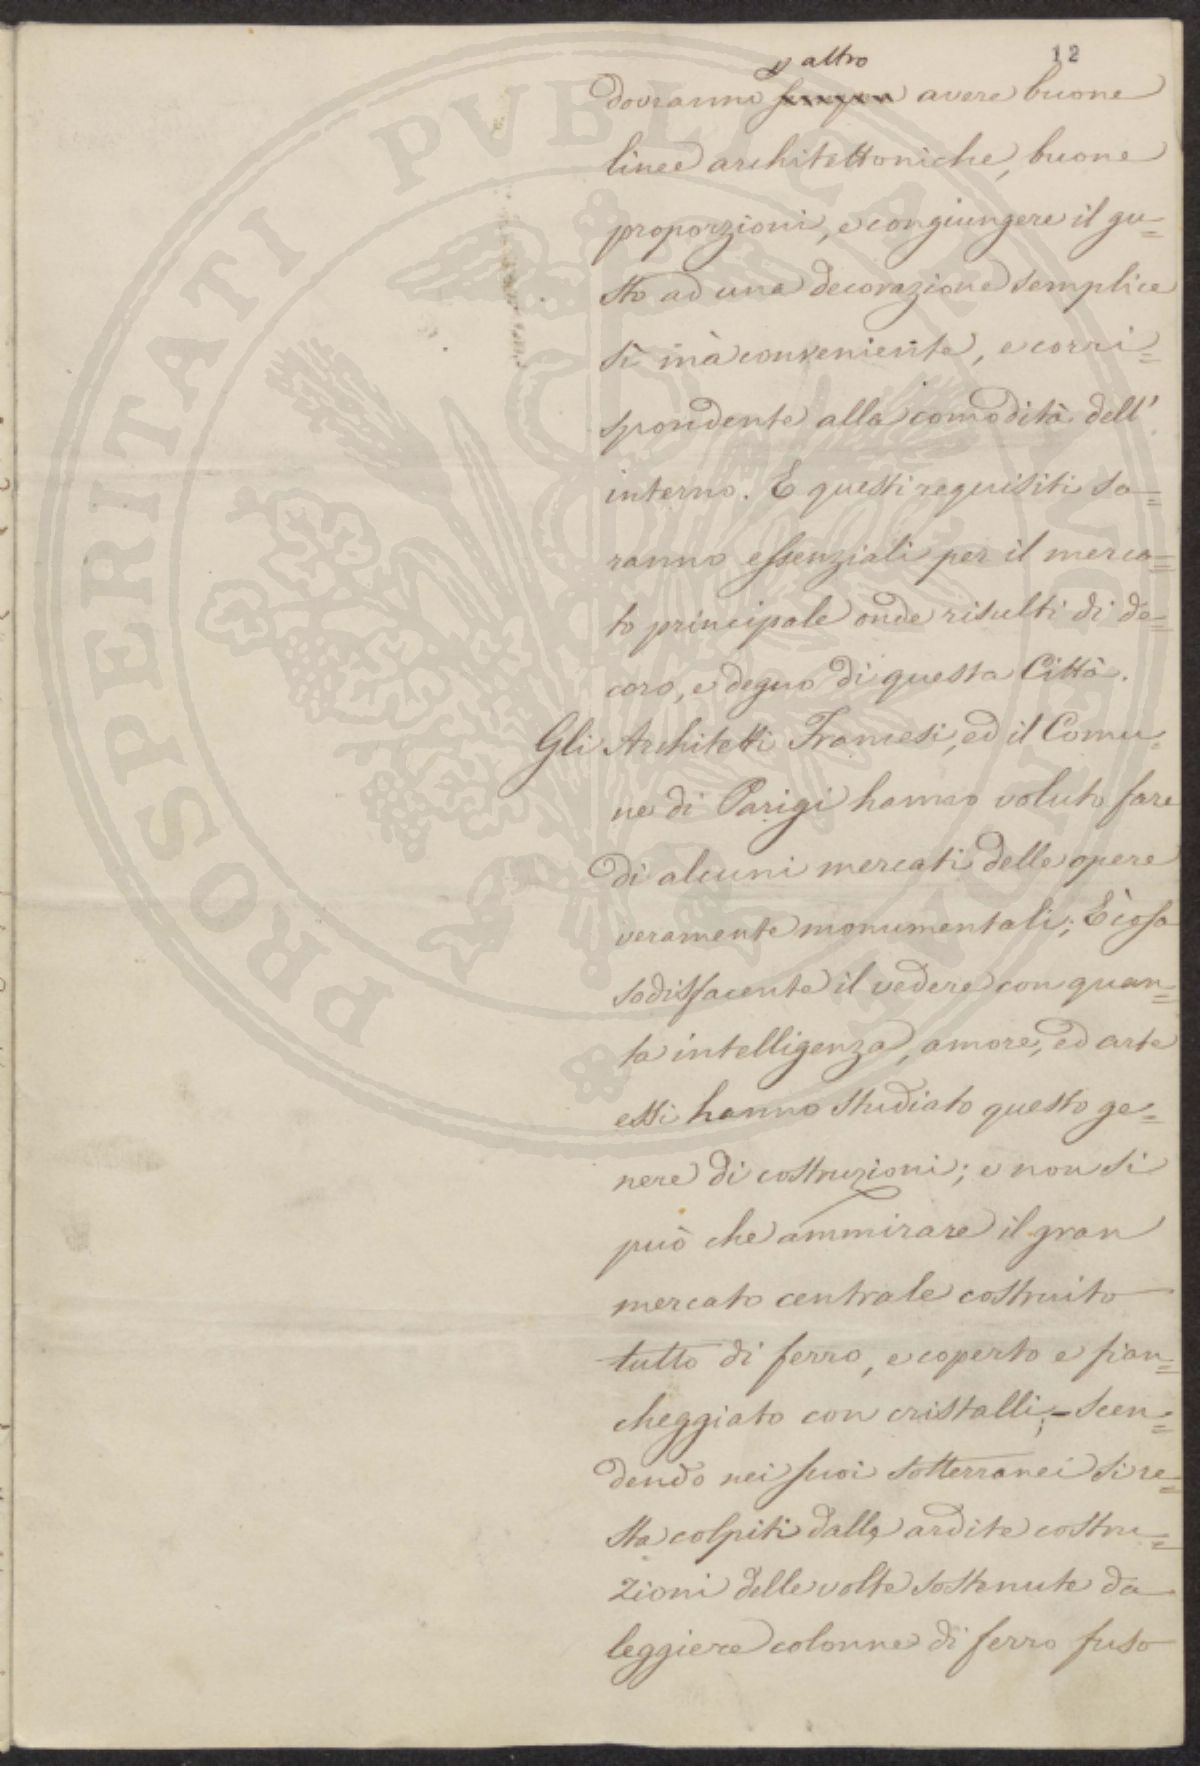 12
p altro
dovranno sempre avere buone
linee architettoniche, buone
proporzioni, e congiungere il gu=
sto ad una decorazione semplice
sì mà conveniente, e corri=
spondente alla comodità dell'
interno. E questi requisiti sa=
ranno essenziali per il merca=
to principale onde risulti di de=
coro, e degno di questa Città.
Gli Architetti Francesi, ed il Comu=
ne di Parigi hanno voluto fare
di alcuni mercati delle opere
veramente monumentali; È cosa
sodisfacente il vedere con quan=
ta intelligenza, amore, ed arte
essi hanno studiato questo ge=
nere di costruzioni; e non si
può che ammirare il gran
mercato centrale costruito
tutto di ferro, e coperto e fian=
cheggiato con cristalli; – Scen=
dendo nei suoi sotterranei si re=
sta colpiti dalle ardite costru=
zioni delle volte sostenute da
leggiere colonne di ferro fuso
PROSPERITATI PVBLICAE